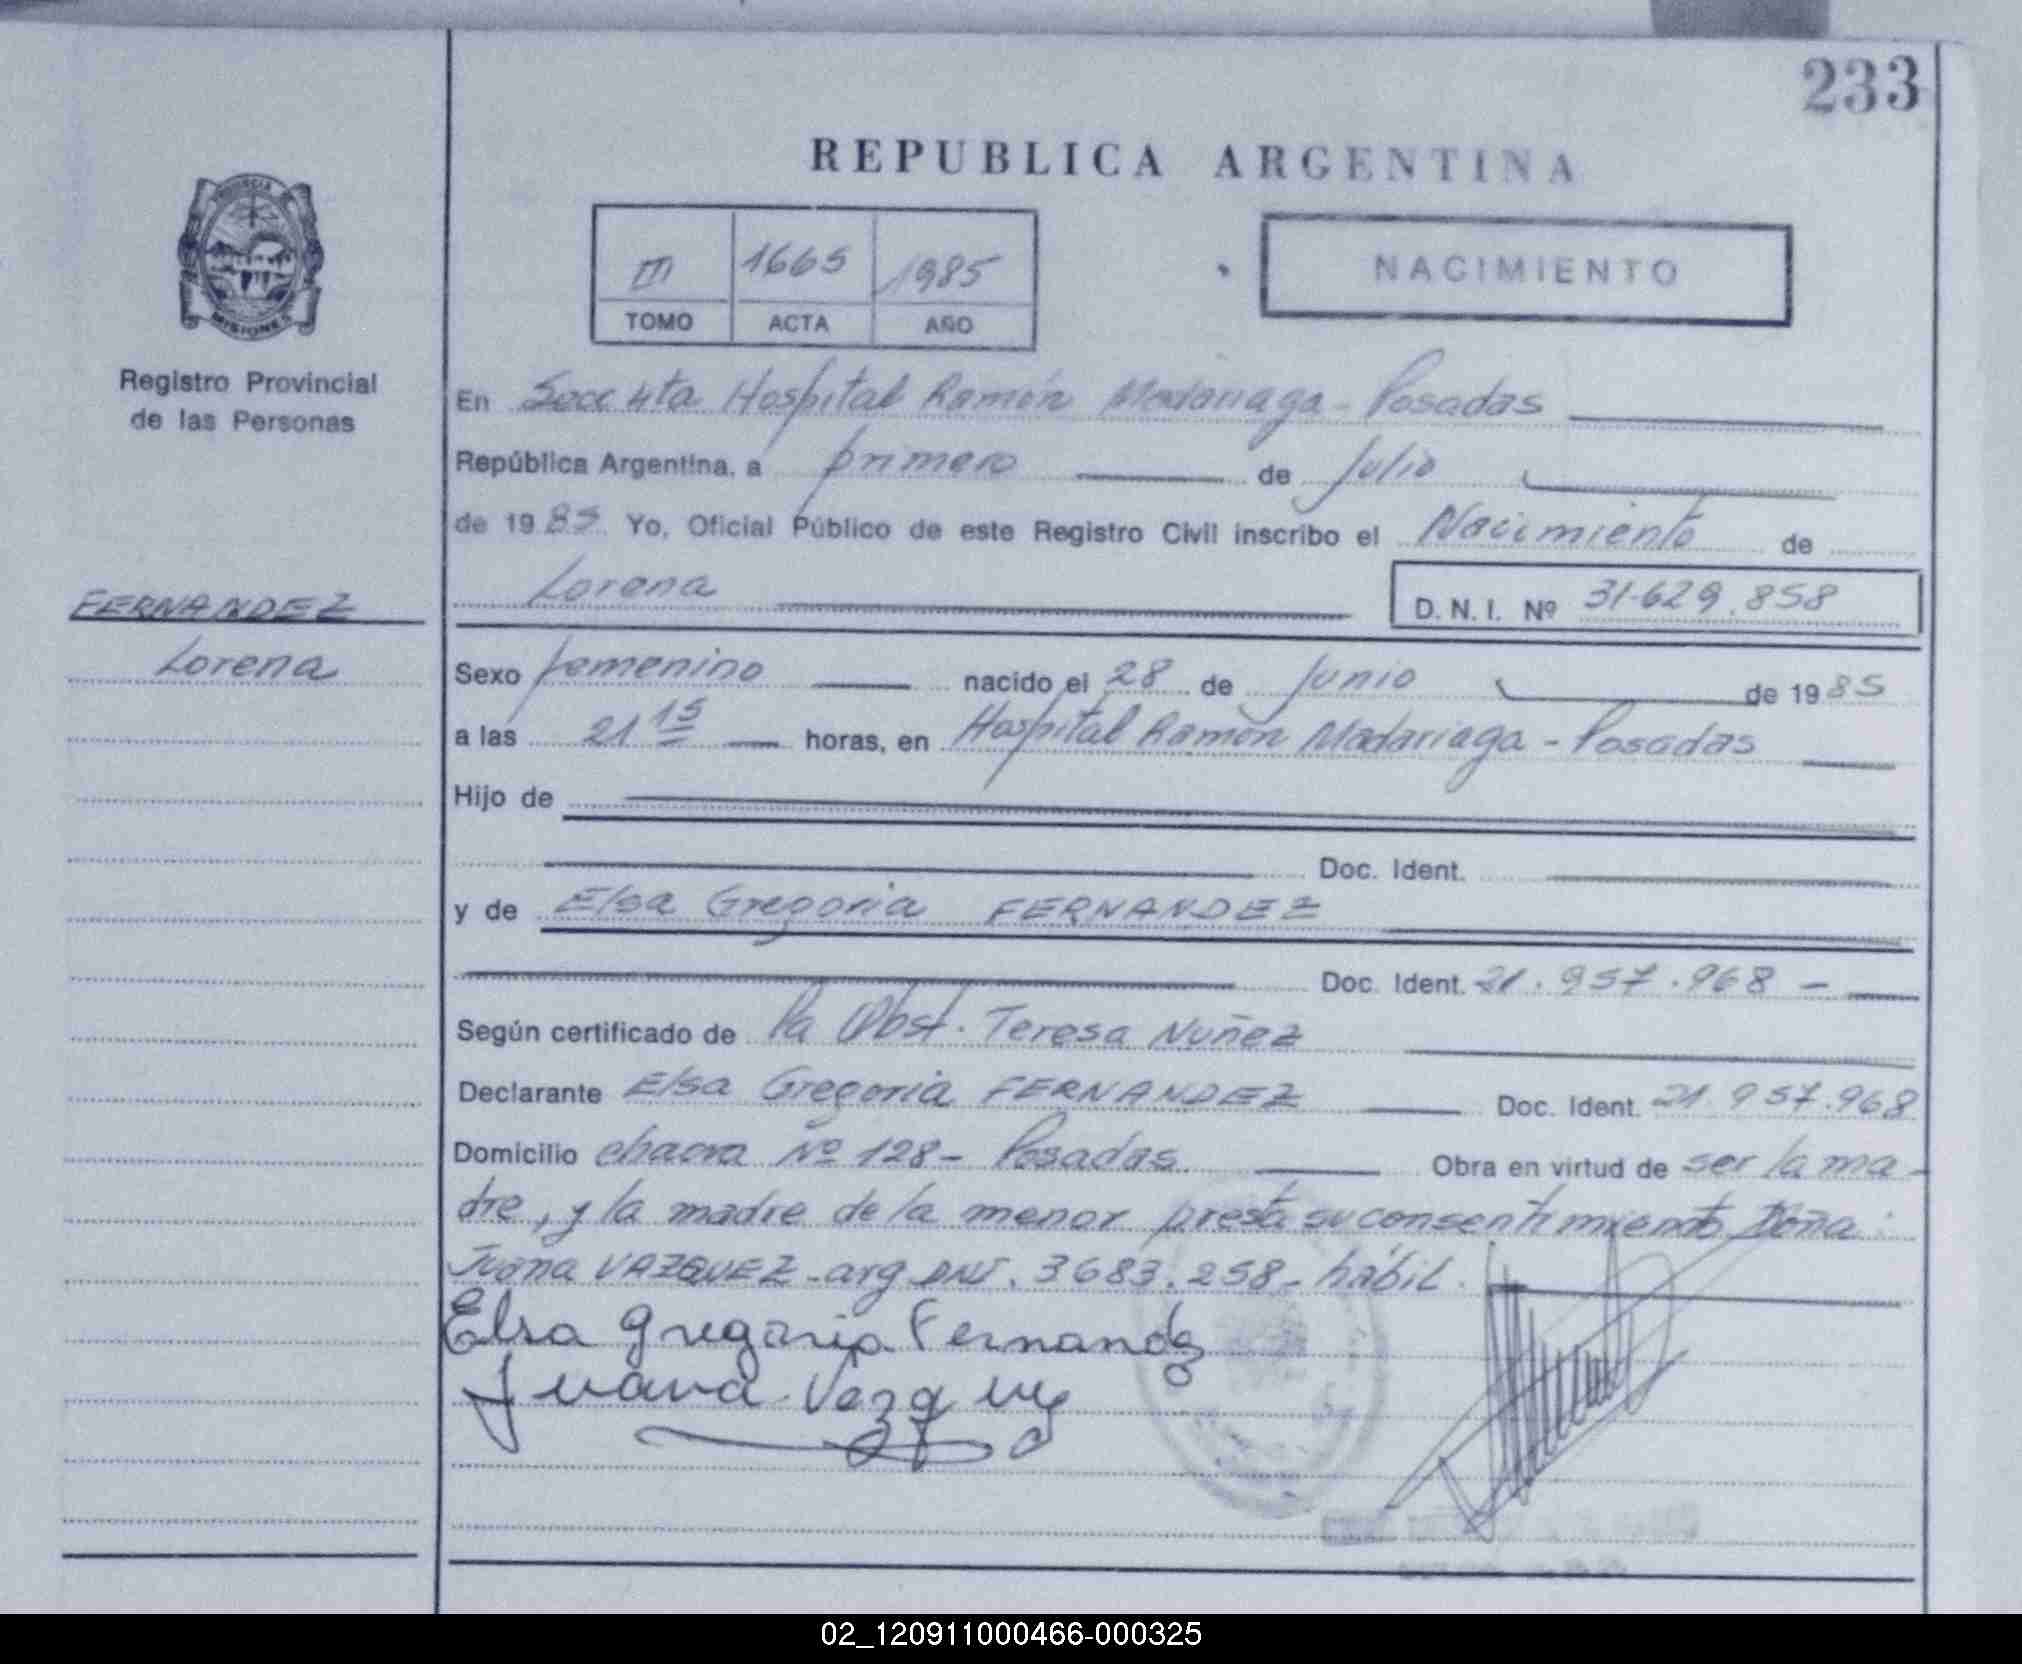 233
REPUBLICA ARGENTINA
III 1665 1985
TOMO ACTA AÑO
NACIMIENTO
MISIONES
Registro Provincial
de las Personas
FERNANDEZ
Lorena
En Secc 4ta Hospital Ramón Madariaga - Posadas
República Argentina, a primero de Julio
de 1985 Yo, Oficial Público de este Registro Civil inscribo el Nacimiento de
Lorena D. N. I. Nº 31.629.858
Sexo femenino nacido el 28 de Junio de 1985
a las 21 15 horas, en Hospital Ramón Madariaga - Posadas
Hijo de
Doc. Ident.
y de Elsa Gregoria FERNANDEZ
Doc. Ident. 21.957.968 -
Según certificado de la Obst. Teresa Nuñez
Declarante Elsa Gregoria FERNANDEZ Doc. Ident. 21.957.968
Domicilio chacra Nº 128 - Posadas Obra en virtud de ser la ma-
dre, y la madre de la menor presta su consentimiento Doña:
Juana VAZQUEZ - arg. DNI. 3683.258 - hábil.
Elsa Gregoria Fernandez
Juana Vazquez
02_120911000466-000325